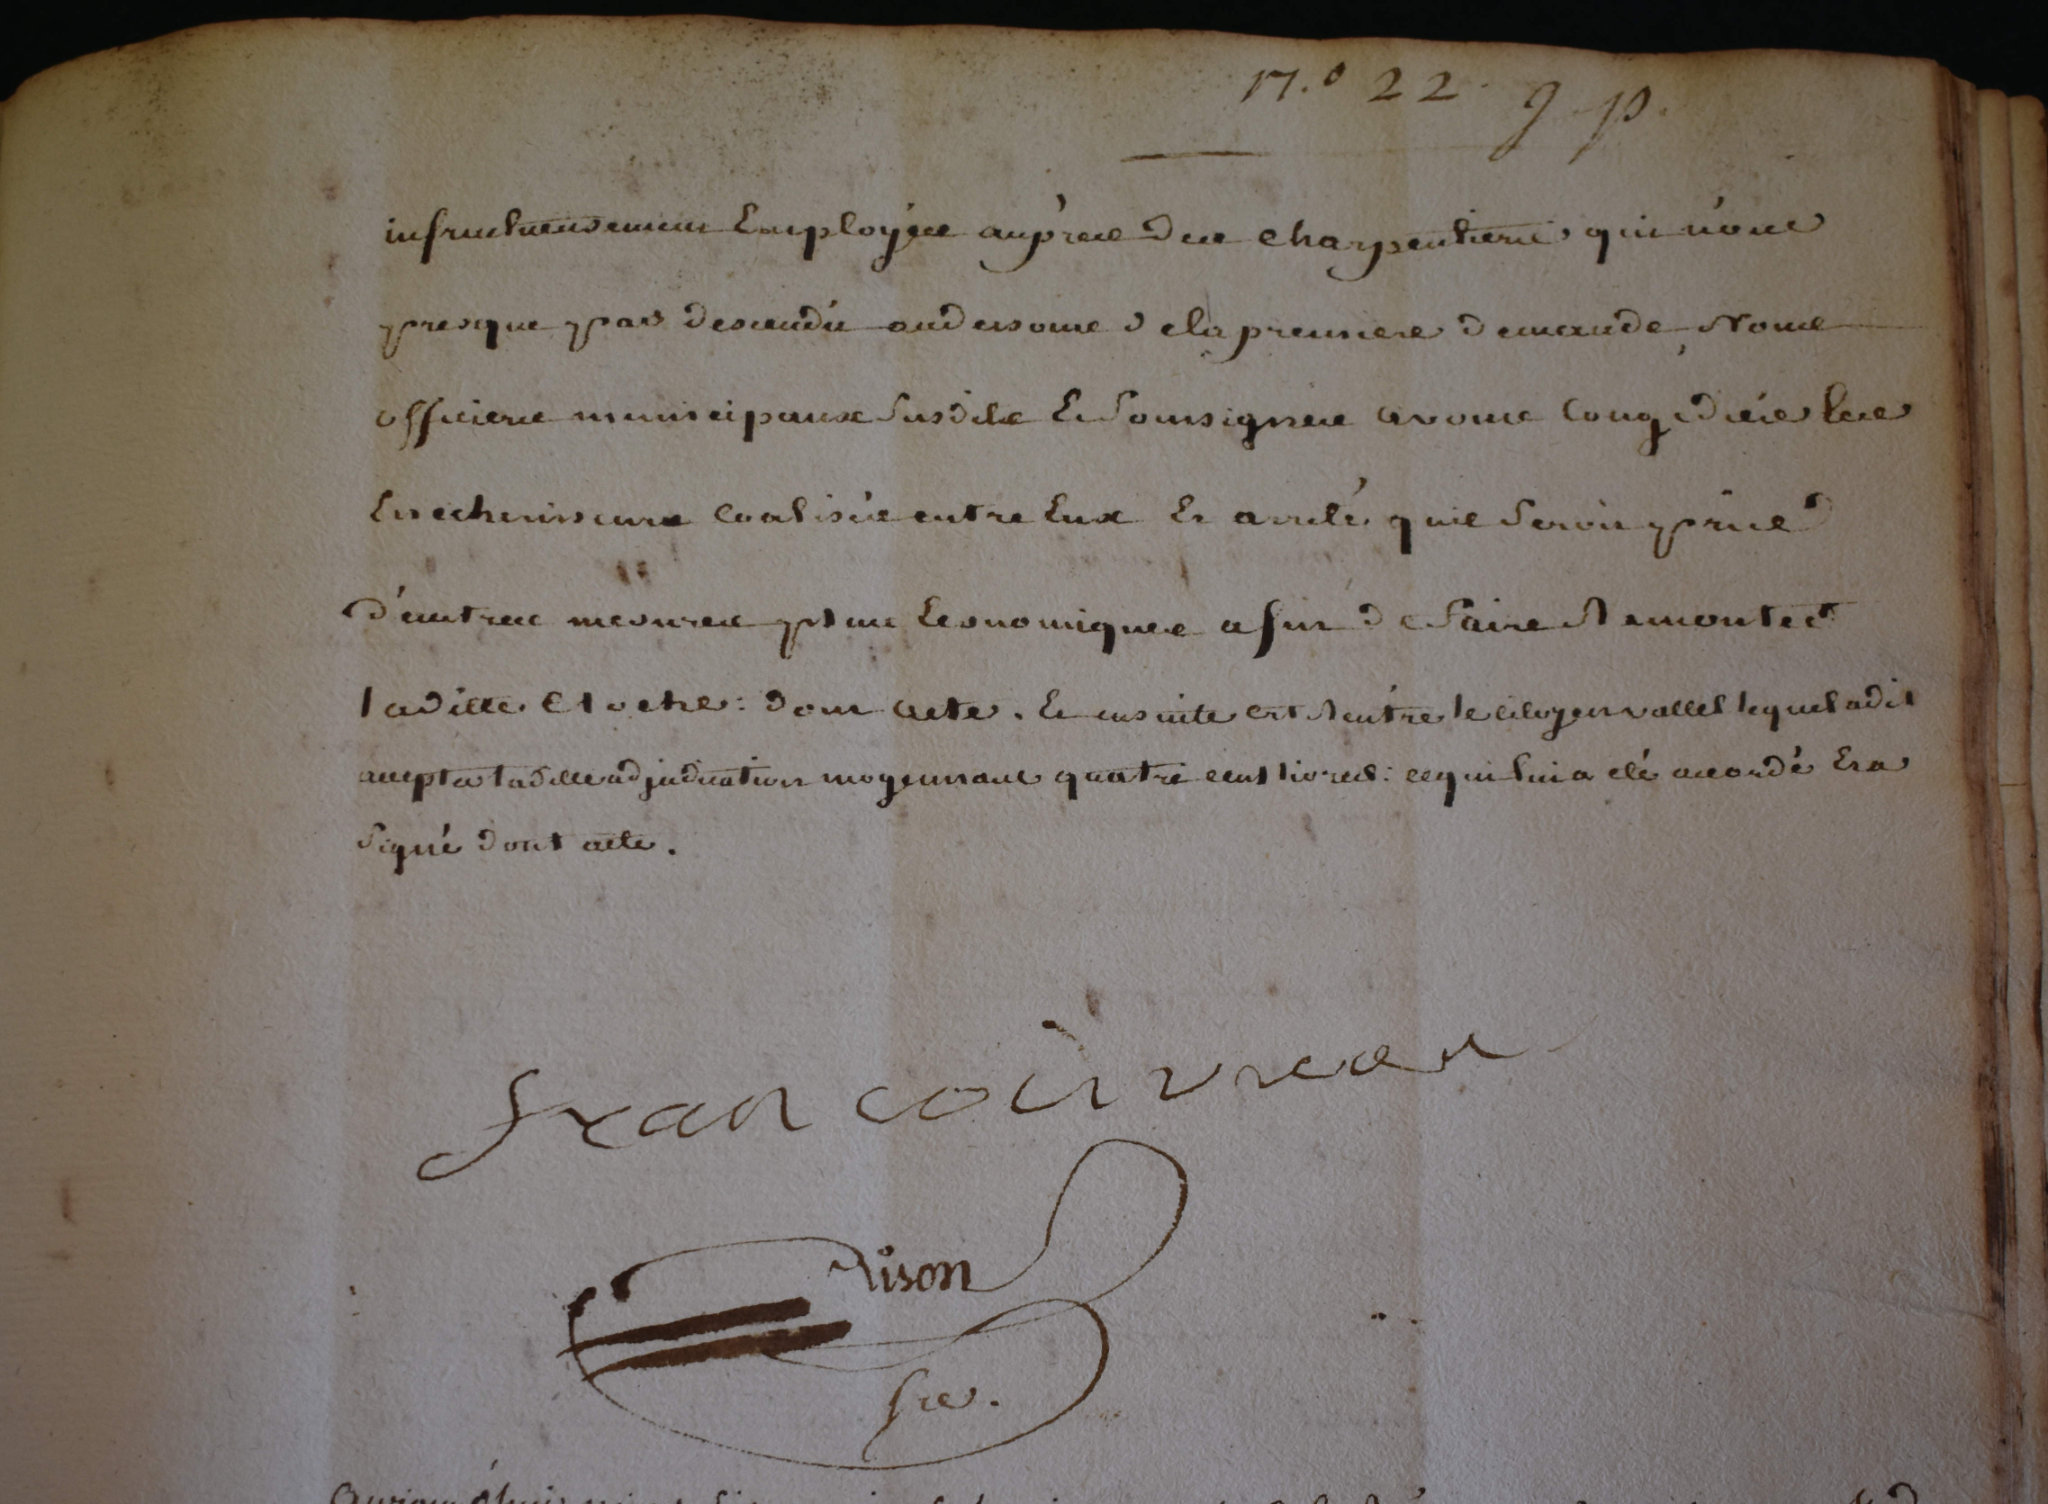 n.° 22. g p.
infructueusement Employés auprès des charpentiers qui n'ons
presque pas descendu audessous de la premiere demande, Nous
officiers municipaux susdits Et soussignés avons congédiés les
Encherisseurs coalisés entre Eux Et arrêté qu'il seroit pris
d'autres mesures plus Economiques afin de faire Remonter
laditte cloche: dont acte. Et ensuite est Rentré le citoyen vallet lequel a dit
accepter laditte adjudication moyennant quatre cent livres: ce qui lui a été accordé Et a
signé dont acte.
fran couvreau
Rison
Sre.